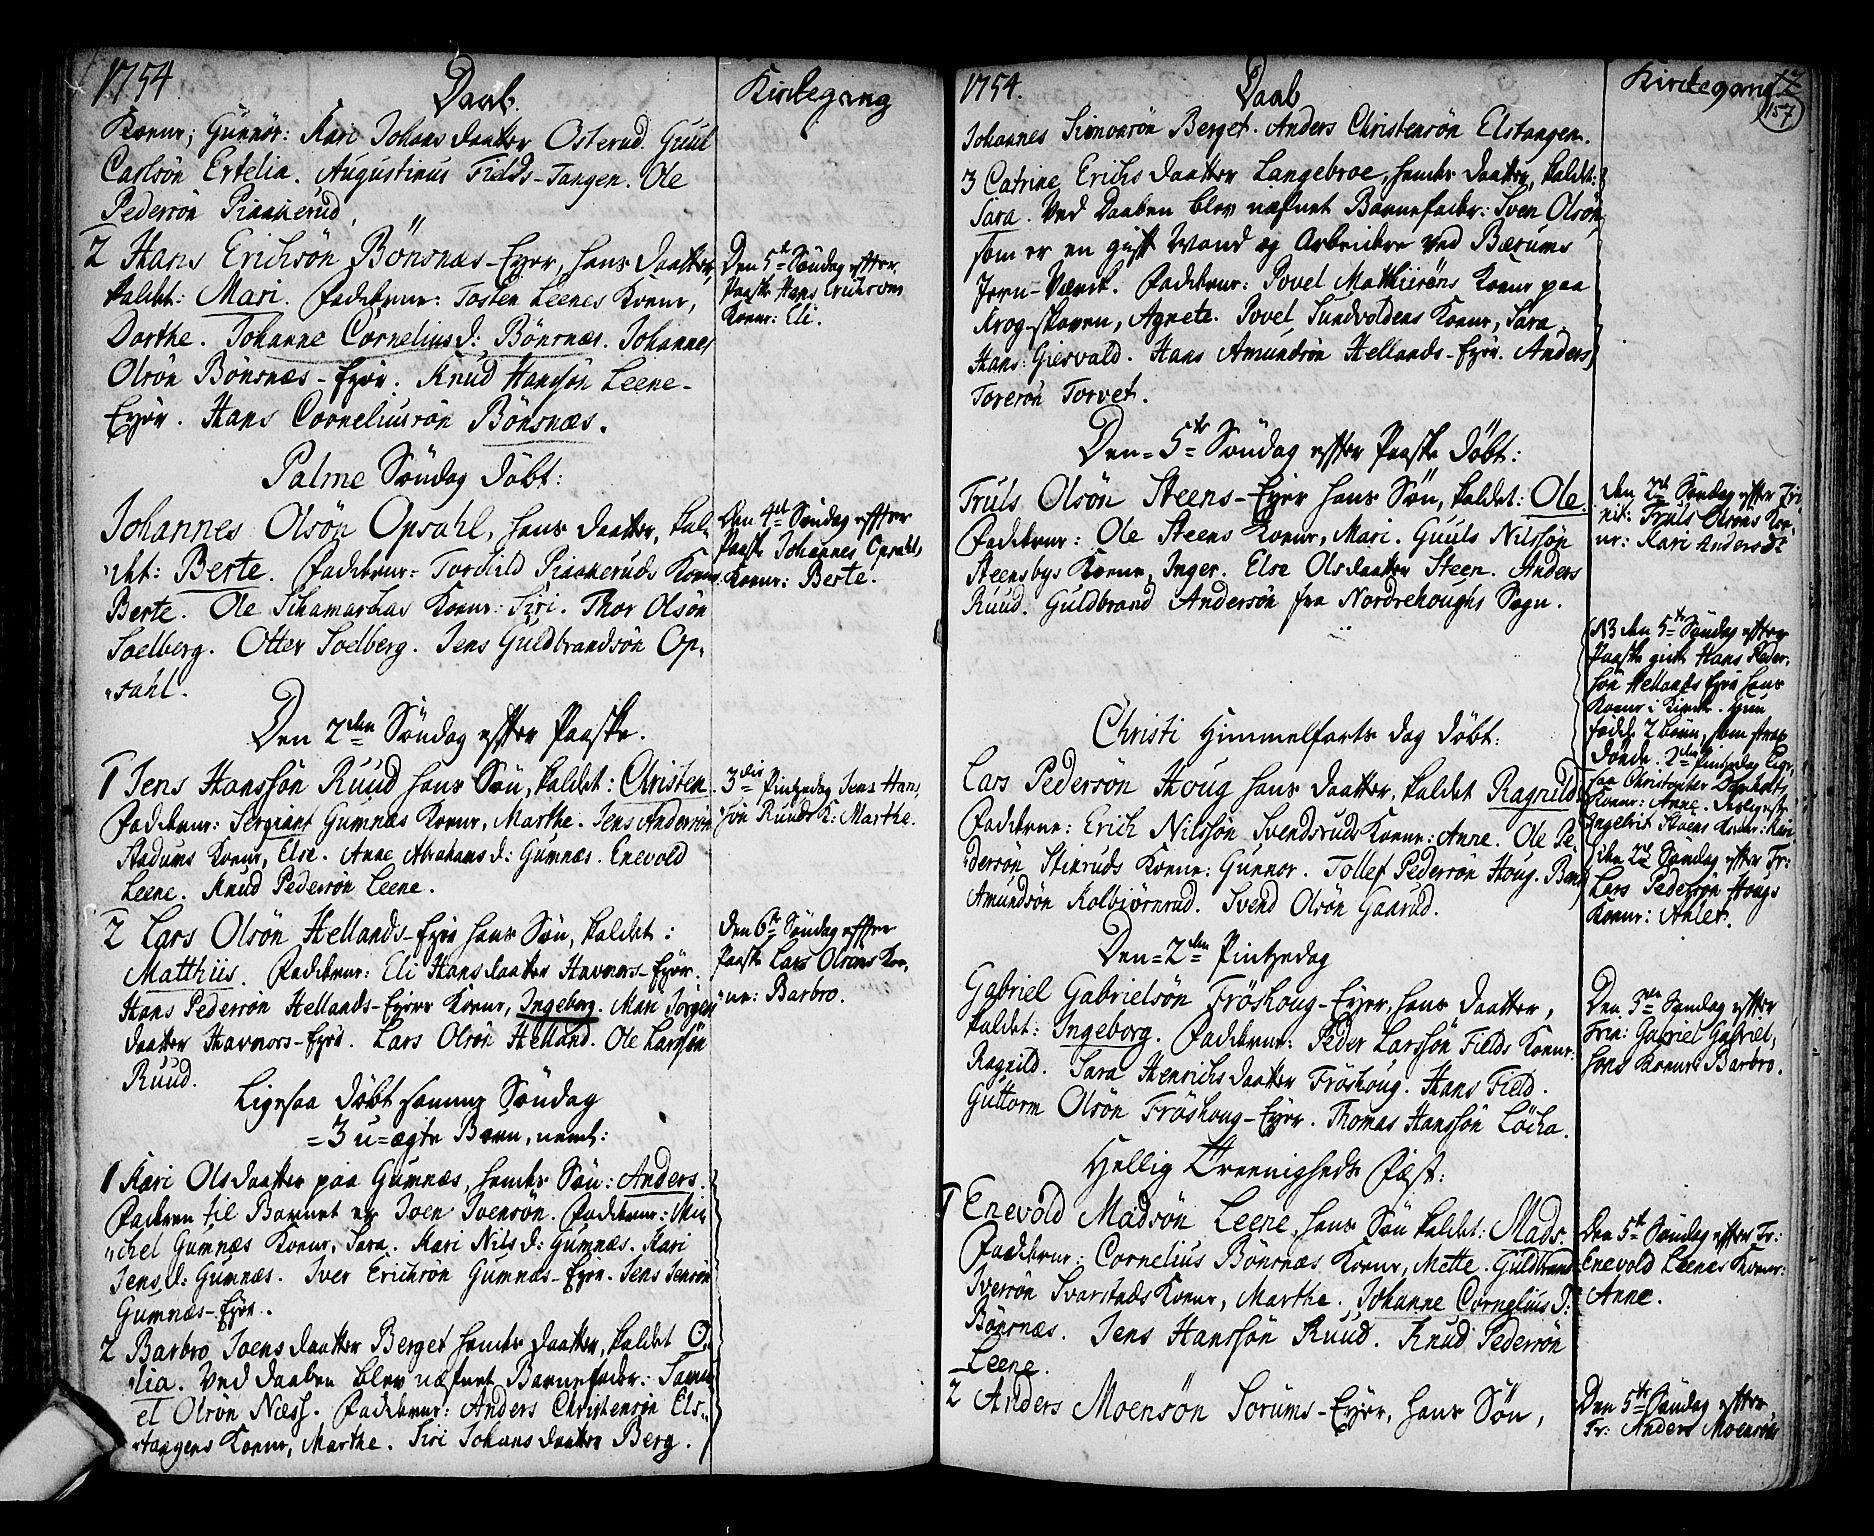 1754
Daab.
Kirkegang
Konur; Gunnor: Kari Johans daatter Osterud. Guul
Carlsön Ertelia. Augustinus Fields-Tangen. Ole
Pedersön Piaakerud.
2 Hans Erichsön Bönsnæs-Eyer, hans daatter,
kaldet: Mari. Fadderne: Tosten Leenes Konur,
Dorthe. Johanne Cornelius d: Bönsnæs. Johannes
Olsön Bönsnæs-Eyer. Knud Hanssön Leene-
Eyer. Hans Corneliusson Bönsnæs.
Den 5te Söndag effter
Paaske Hans Erichsöns
Konur: Eli.
Palme Söndag döbt:
Johannes Olsön Opsahl, hans daatter, kal-
det: Berte. Fadderne: Torchild Piaakeruds Konur
Berte. Ole Schamarchas Konur: Siri. Thor Olsön
Soelberg. Otter Soelberg. Jens Guldbrandsön Op-
sahl.
Den 4de Söndag effter
Paaske Johannes Opsahls
Konur: Berte.
Den 2den Söndag effter Paaske.
1 Jens Hanssön Ruud hans Sön, kaldet: Christen
Fadderne: Sergiant Gumnæs Konur, Marthe. Jens Andersön
Stadums Konur, Else. Anne Abrahams d: Gumnæs. Enevold
Leene. Knud Pedersön Leene.
3die Pintzedag Jens Han-
sön Ruuds K: Marthe.
2 Lars Olsön Hellands-Eyer hans Sön, kaldet:
Matthiis. Fadderne: Eli Hans daatter Havnors-Eyer.
Hans Pedersön Hellands-Eyers Konur, Ingeborg. Mari Jörgens
daatter Havnors-Eyer. Lars Olsön Helland. Ole Larssön
Ruud.
Den 6te Söndag effter
Paaske Lars Olsöns Ko-
nur: Barbro.
Ligesaa döbt samme Söndag
=3 u=ægte Börn, neml:
1 Kari Ols daatter paa Gumnæs, hendes Sön: Anders.
Faderen til Barnet er Joen Joensön. Fadderne: Mi-
chel Gumnæs Konur, Sara. Kari Nils d: Gumnæs. Kari
Jens d: Gumnæs. Iver Erichsön Gumnæs-Eyer. Jens Jensön
Gumnæs-Eyer.
2 Barbro Joens daatter Berget hendes daatter, kaldet O-
lia. Ved daaben blev næfnet Barnefader: Samu-
el Olsön Næss. Fadderne: Anders Christensön Els-
tangens Konur, Marthe. Siri Johans daatter Berg.
1754.
Daab
Kirkegang
157
Johannes Simonsön Berget. Anders Christensön Elstangen.
3 Catrine Erichs daatter Langebroe, hendes daatter, kaldet:
Sara. Ved Daaben blev næfnet Barnefader: Sven Olsön,
som er en gift Mand og Arbeidere ved Bærums
Jern-Værck. Fadderne: Povel Mathiisöns Konur paa
Krog-skoven, Agnete. Povel Sundvoldens Konur, Sara.
Hans: Giesvald. Hans Amundsön Hellands-Eyer. Anders
Toresön Torvet.
Den 5te Söndag effter Paaske döbt:
Truls Olsön Steens-Eyer hans Sön, kaldet: Ole.
Fadderne: Ole Steens Konur, Mari. Guuls Nilssön
Steensbys Konur, Inger. Else Ols daatter Steen. Anders
Ruud. Guldbrand Andersön fra Nordrehoughs Sogn.
Den 2den Söndag effter Tri-
nit: Truls Olsöns Ko-
nur: Kari Andersd:
NB den 5te Söndag effter
Paaske gick Hans Peder-
sön Hellands Eyer hans
Konur i Kircke. Hun
födde 2 börn, som strax
döde. 2den Pintzedag Lige-
saa Christopher
Konur: Anne.
Ingebrit Stöens Konur: Kari
Christi Himmelfarts dag döbt:
Lars Pedersön Houg hans daatter, kaldet Ragnild.
Fadderne: Erich Nilssön Svendsruds Konur: Anne. Ole Pe-
dersön Stixruds Konur: Gunnor. Tollef Pedersön Houg. Bent
Amundsön Kolbiörnrud. Svend Olsön Gaarud.
Den 2den Söndag effter Tr:
Lars Pedersön Hougs
Konur: Ahlet.
Den=2den Pintzedag
Gabriel Gabrielsön Fröshoug-Eyer, hans daatter,
kaldet: Ingeborg. Fadderne: Peder Larssön Fields Konur:
Ragnild. Sara Henrichs daatter Fröshoug. Hans Field.
Guttorm Olsön Fröshoug-Eyer. Thomas Hanssön Löcka.
Den 3die Söndag effter
Trin: Gabriel Gabriel-
söns Konur: Barbro.
Hellig Treenigheds Fæst:
1 Enevold Madsön Leene, hans Sön kaldet: Mads.
Fadderne: Cornelius Bönsnæs Konur, Mette. Guldbrand
Iversön Svarstads Konur, Marthe. Johanne Cornelius d:
Bönsnæs. Jens Hanssön Ruud. Knud Pedersön
Leene.
Den 5te Söndag effter Tr:
Enevold Leenes Konur:
Anne.
2 Anders Moensön Sorums-Eyer, hans Sön,
Den 5te Söndag effter
Tr: Anders Moensöns